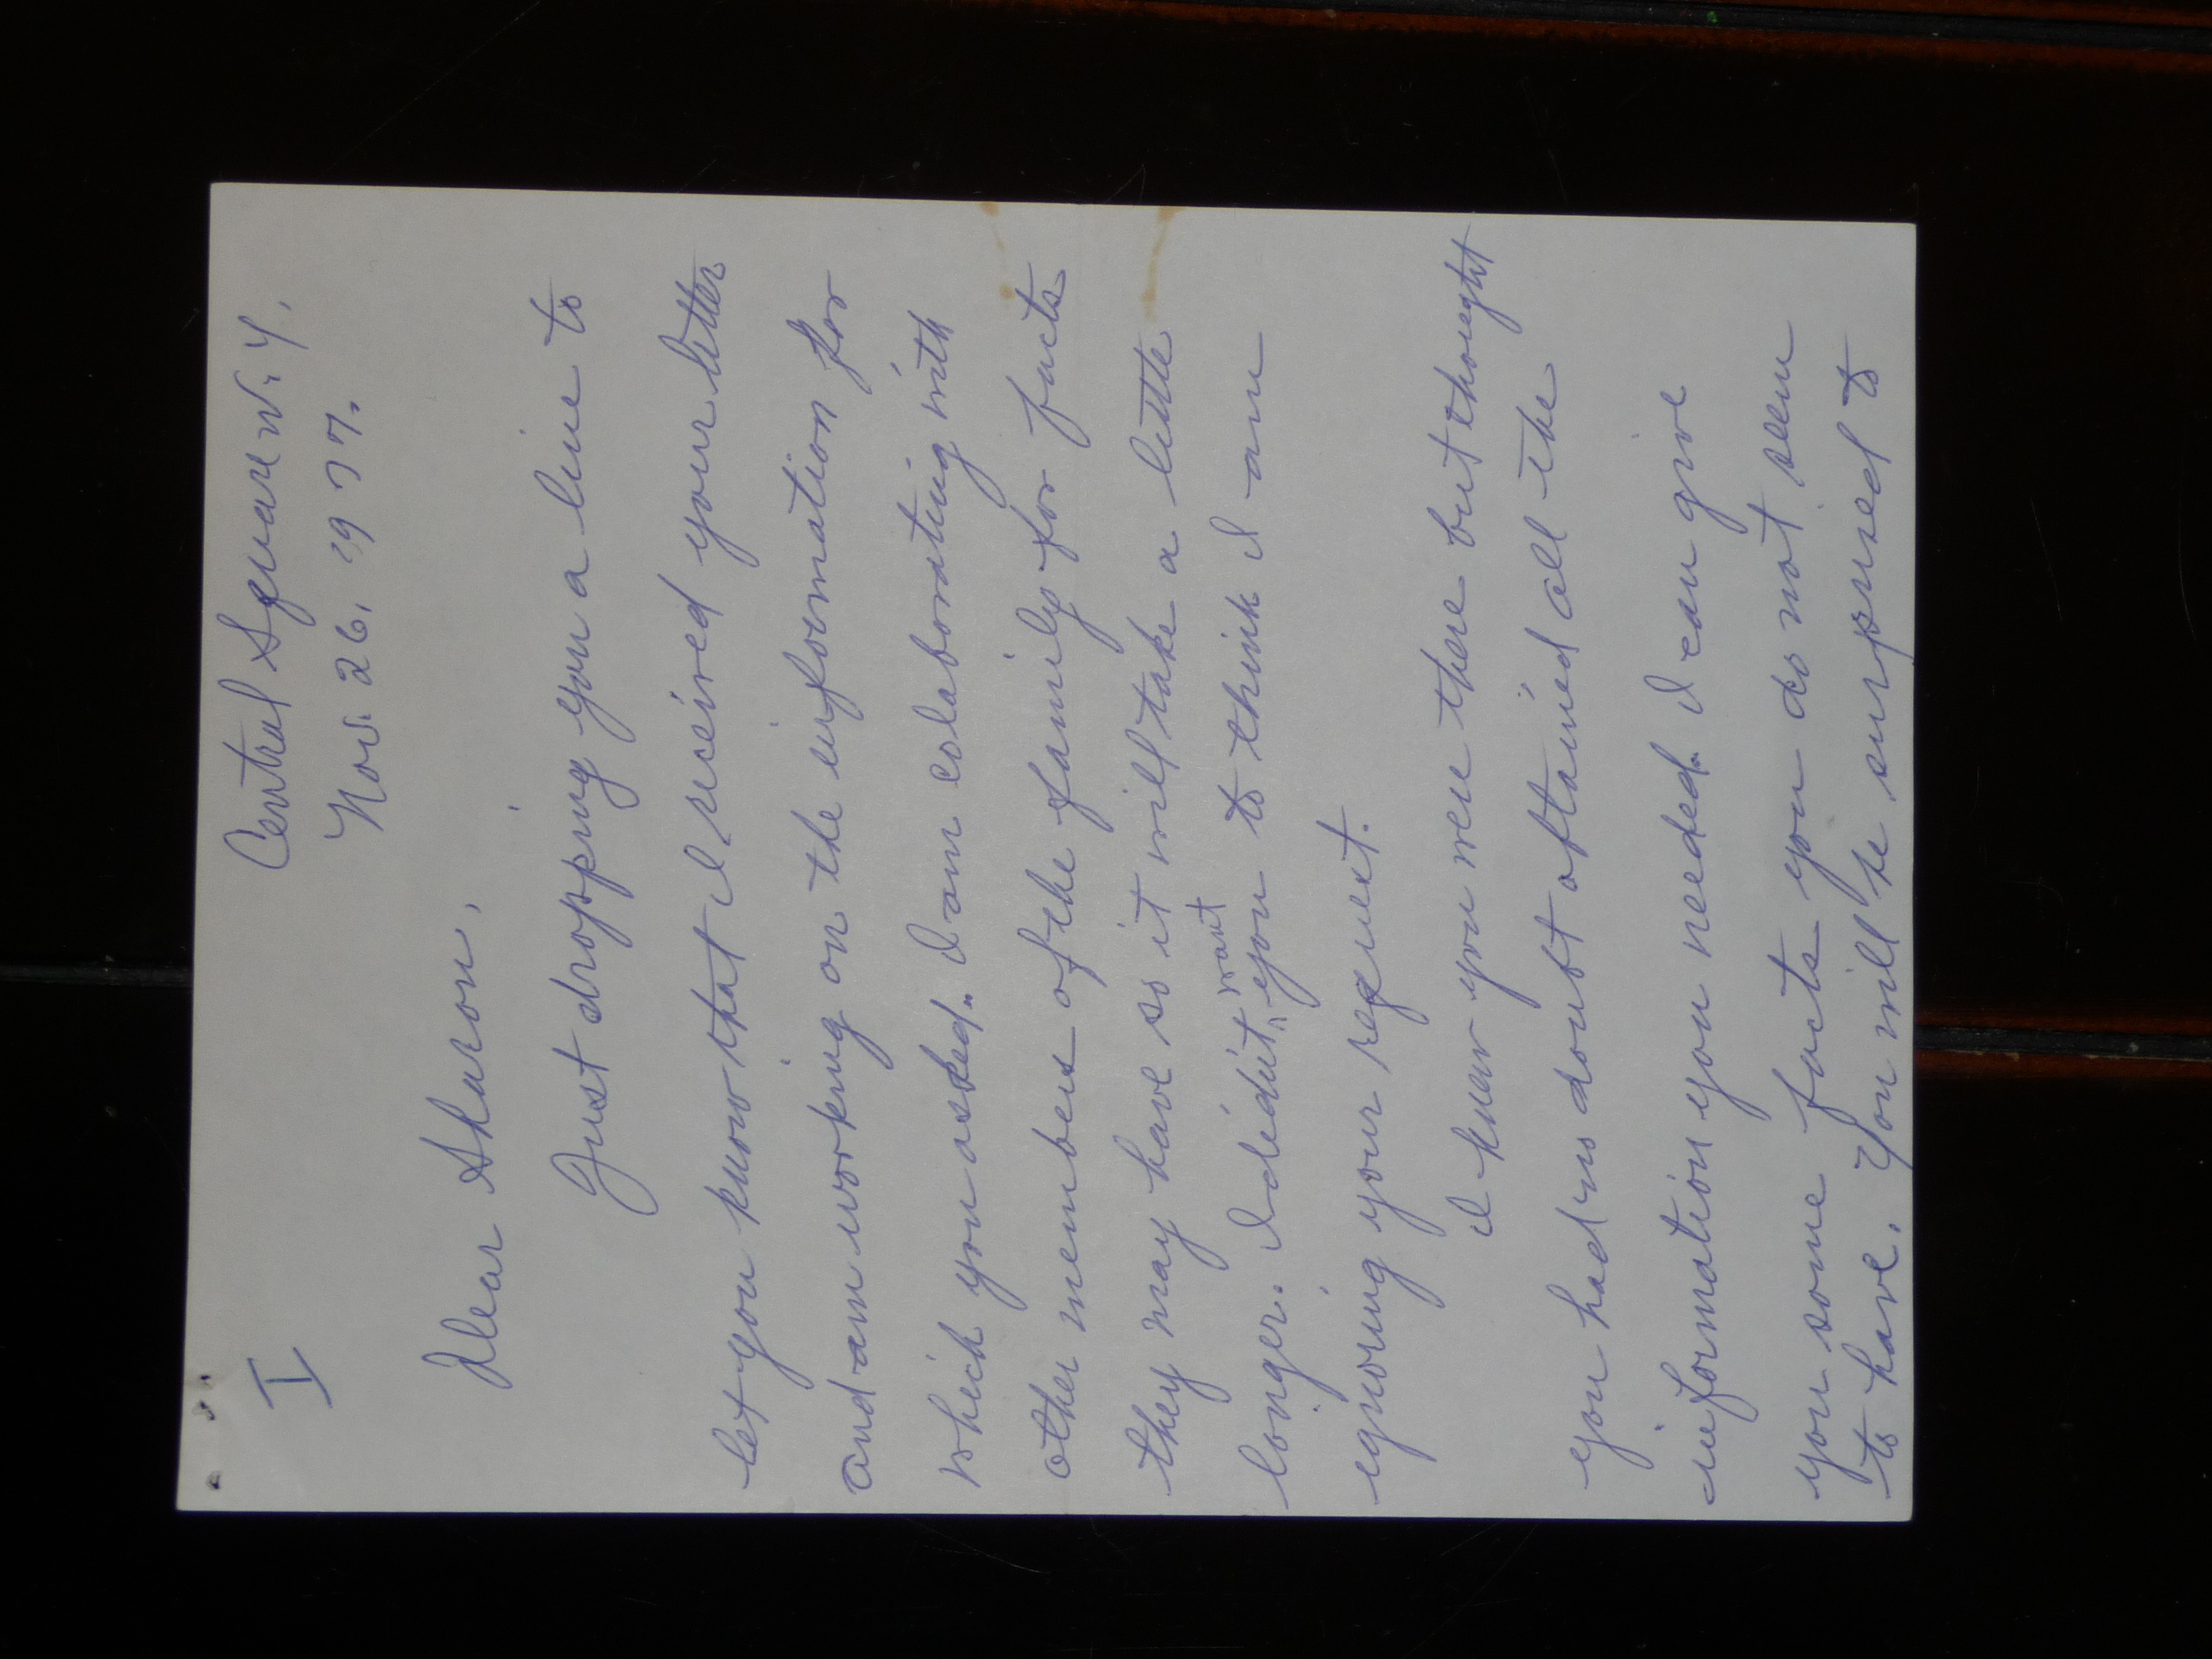 I
Central Square N.Y.
Nov. 26, 1977.
Dear Sharon,
Just dropping you a line to
let you know that I received your letter
and am working on the information for
which you asked. I am colaborating with
other members of the family for facts
they may have so it will take a little
longer. I didn't want you to think I am
ignoring your request.
I knew you were there but thought
you had no doubt obtained all the
information you needed. I can give
you some facts you do not seem
to have. You will be surprised to